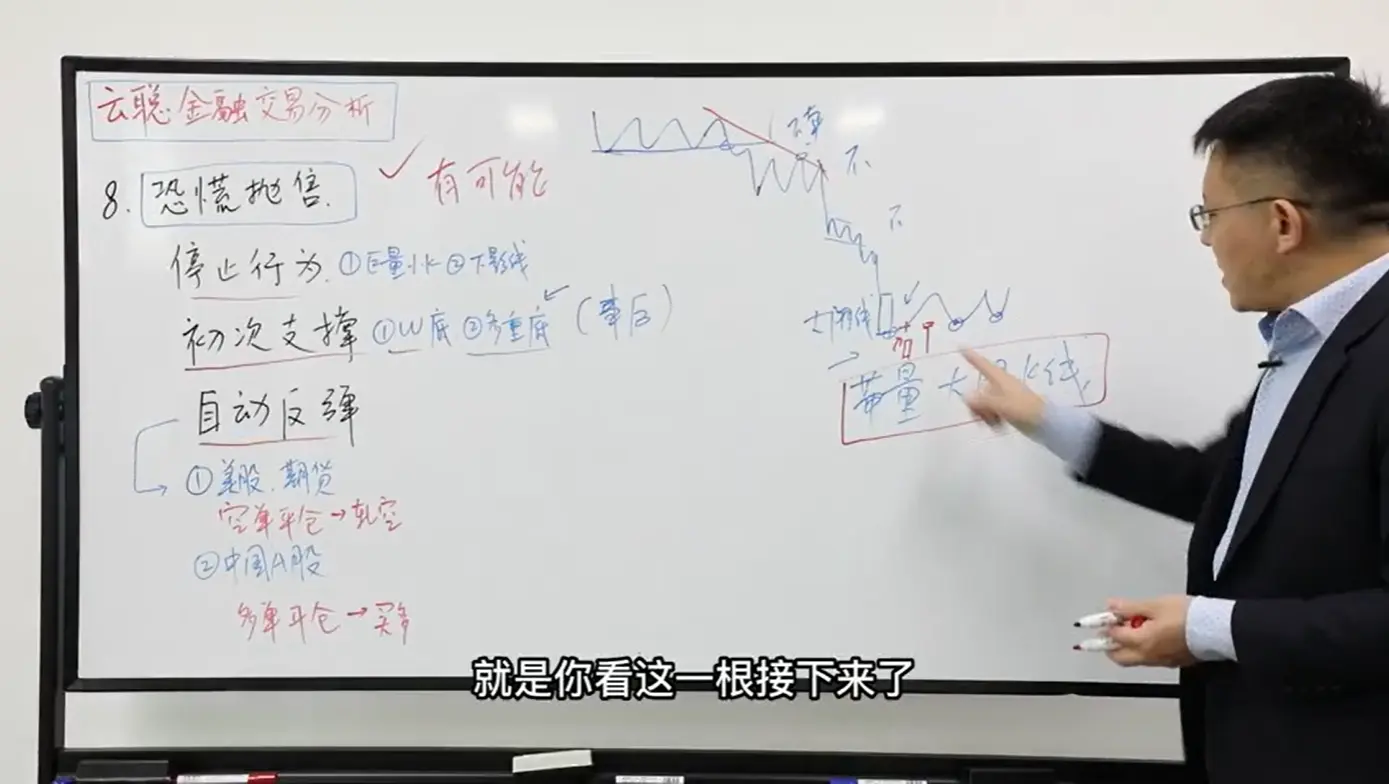 云聪金融交易分析
8. 恐慌抛售.
有可能
停止行为. ①巨量小K ②下影线
初次支撑 ①W底 ②多重底 (幸后)
自动反弹
①美股.期货
空单平仓→轧空
②中国A股
多单平仓→买多
不
不
大阴线
带量大阴K线.
就是你看这一根接下来了